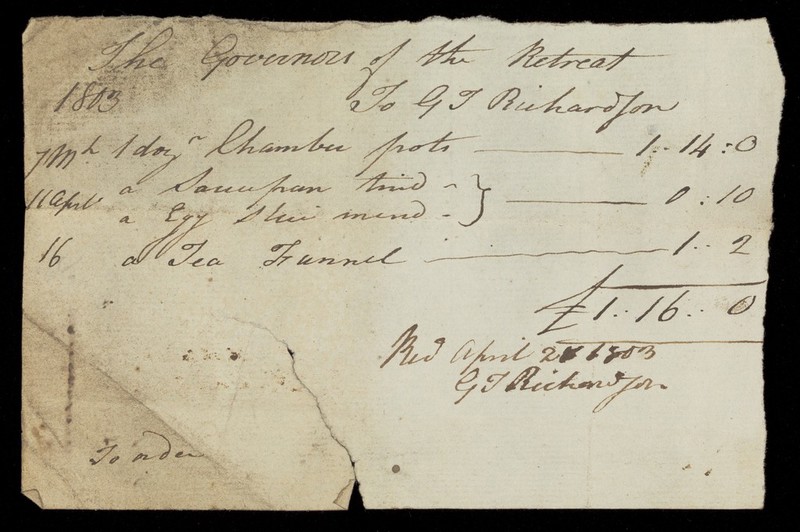 The Governors of the Retreat
1803 To G T Richardson
7 Mh 1 dozn Chamber pots 1 .. 14 : 0
11 April a Saucepan tind
a Egg slice mend } 0 : 10
16 a Tea Funnel 1 .. 2
£ 1 .. 16 .. 0
Recd April 1803
G T Richardson
To order